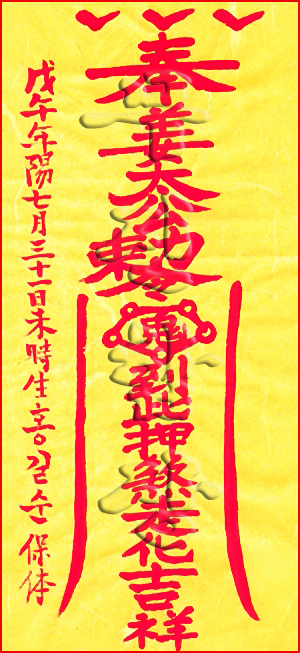 奉姜太公勅令到此押煞化吉祥
戊午年陽七月三十一日未時生홍길순 保体